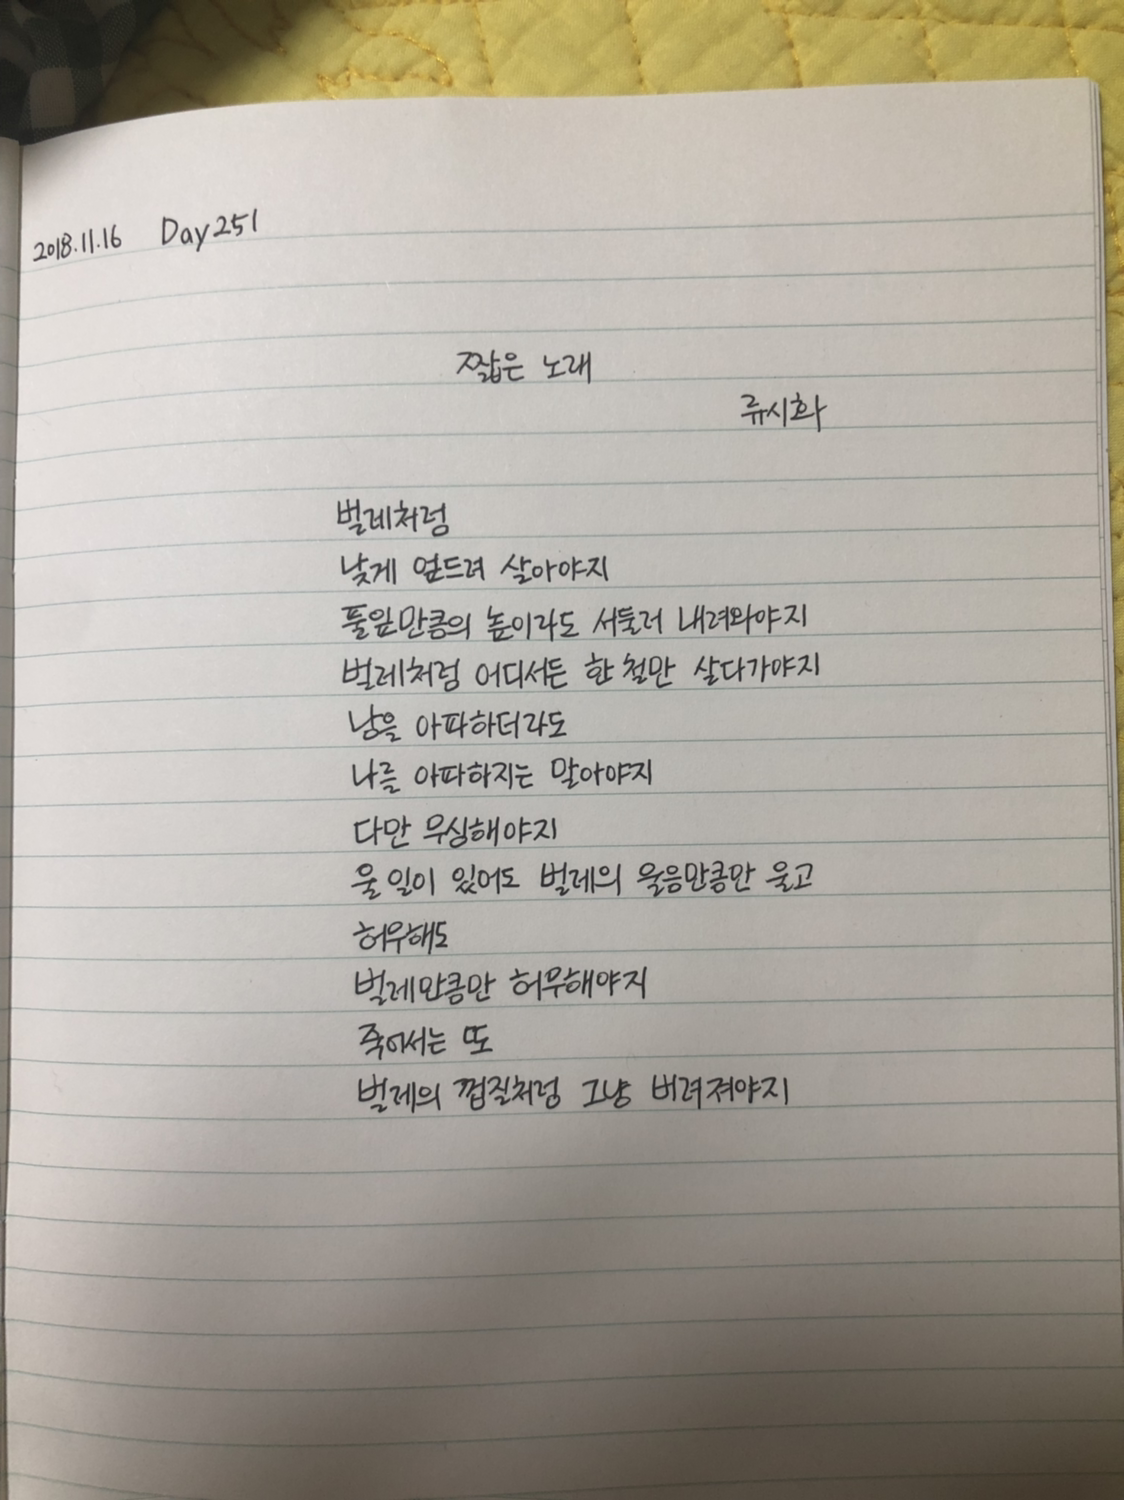 2018.11.16 Day 251
짧은 노래
류시화
벌레처럼
낮게 엎드려 살아야지
풀잎만큼의 높이라도 서둘러 내려와야지
벌레처럼 어디서든 한 철만 살다가야지
남을 아파하더라도
나를 아파하지는 말아야지
다만 무심해야지
울 일이 있어도 벌레의 울음만큼만 울고
허무해도
벌레만큼만 허무해야지
죽어서는 또
벌레의 껍질처럼 그냥 버려져야지